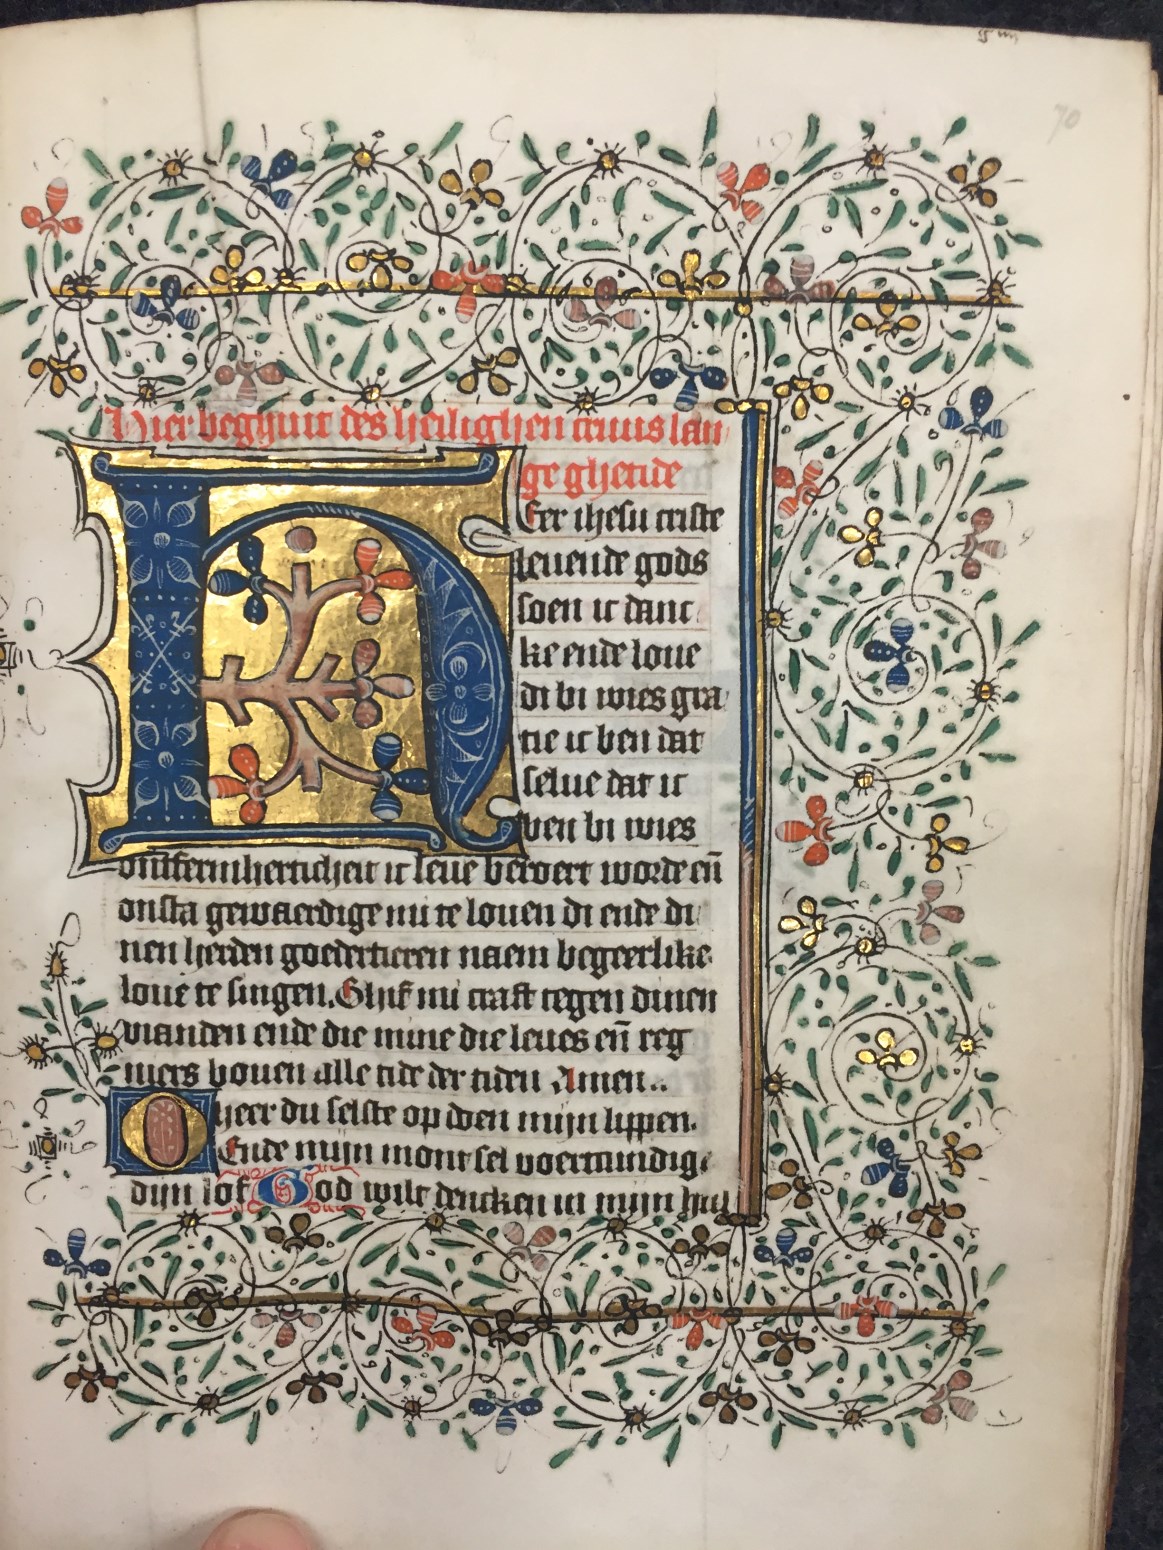 70
Hier begynt des heilighen cruus lan
ge ghetide
Heer ihesu criste
leuende gods
soen ic danc
ke ende loue
di bi wies gra
tie ic ben dat
selue dat ic
ben bi wies
ontfermherticheit ic leue
gewaerdige mi te louen di ende di
nen heiden goedertieren naem begeerlike
loue te singen. Ghif mi craft tegen dinen
vianden ende die mine die leues eñ reg
niers bouen alle tide der tiden Amen..
O heer du selste op doen mijn lippen.
Ende mijn mont sel voercundig
dijn lof God wilt dencken in mijn hul